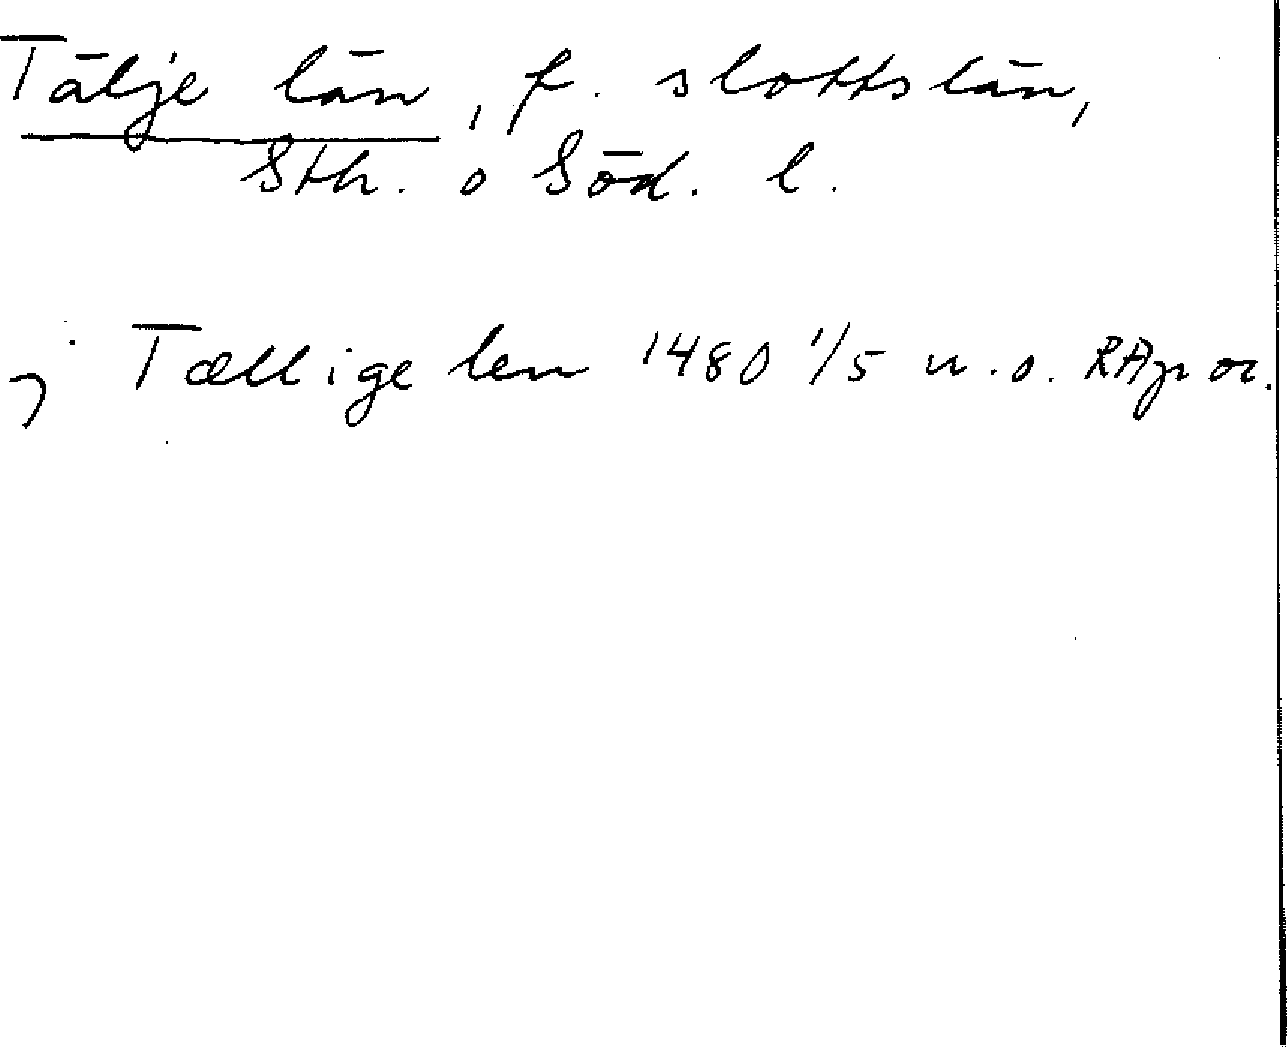 Tälje län, f. slottslän,
Sth. o Söd. l.
j Tællige len 1480 1/5 u.o. RAp or.